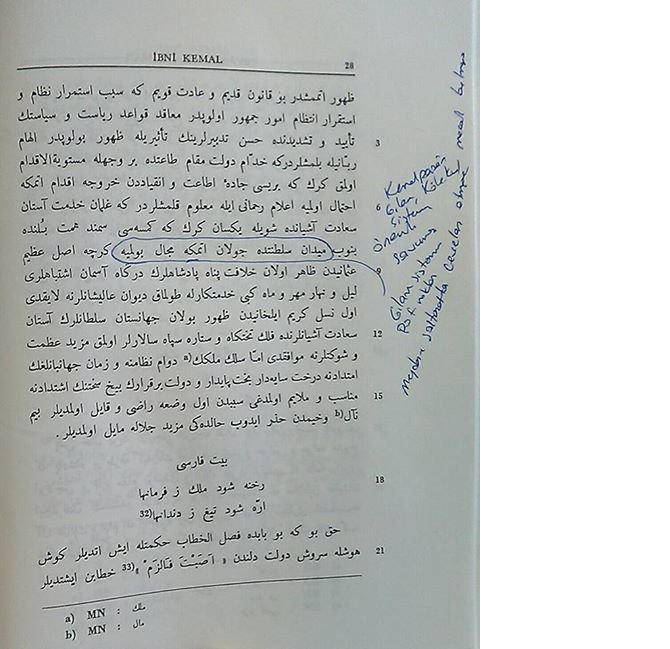 İBNİ KEMAL
28
ظهور اتممشدر بو قانون قديم و عادت قويم كه سبب استمرار نظام و
استقرار انتظام امور جمهور اولوپدور معاقد قواعد رياست و سياستك
3
تأييد و تشديدنده حسن تدبيرلرينك تأثيريله ظهور بولوپدر الهام
ربّانيله بلمشلردركه خدّام دولت مقام طاعتده بر وجهله مستوية الاقدام
اولمق كرك كه بريسى جادهٔ اطاعت و انقياددن خروجه اقدام اتمكه
6
احتمال اوليه اعلام رحمانى ايله معلوم قلمشلردر كه غلمان خدمت آستان
سعادت آشيانده شويله يكسان كرك كه كمسه‌سى سمند همت بلنده
بنوب ميدان سلطنتده جولان اتمكه مجال بولميه كرچه اصل عظيم
9
عثمانيدن ظاهر اولان خلافت پناه پادشاهلرك دركاه آسمان اشتباهلرى
ليل و نهار مهر و ماه كبى خدمتكارله طولماق ديوان عاليشانلرنه لايقدى
اول نسل كريم ايلخانيدن ظهور بولان جهانستان سلطانلرك آستان
12
سعادت آشيانلرنده فلك تختكاه و ستاره سپاه سالارلر اولمق مزيد عظمت
و شوكتلرنه موافقدى امّا سلك ملكك(a دوام نظامنه و زمان جهانبانلغك
امتدادنه درخت سايه‌دار بخت پايدار و دولت برقرارك بيخ سختنك اشتدادنه
15
مناسب و ملايم اولمدغى سببدن اول وضعه راضى و قايل اولمديلر بيم
مآل(b وخيمدن حذر ايدوب حالده‌كى مزيد جلاله مايل اولمديلر.
بيت فارسى
18
رخنه شود ملك ز فرمانها
ارّه شود تيغ ز دندانها(32
حق بو كه بو بابده فصل الخطاب حكمتله ايش اتديلر كوش
21
هوشله سروش دولت دلندن « اَصَبْتَ فَالْزَمْ »(33 خطابن ايشتديلر
a) MN : ملك
b) MN : مال
Kemalpaşa
sistem
savunu
Gılam sistemi
Meydan saltanatta cevelan etmeye mecal bulmaya